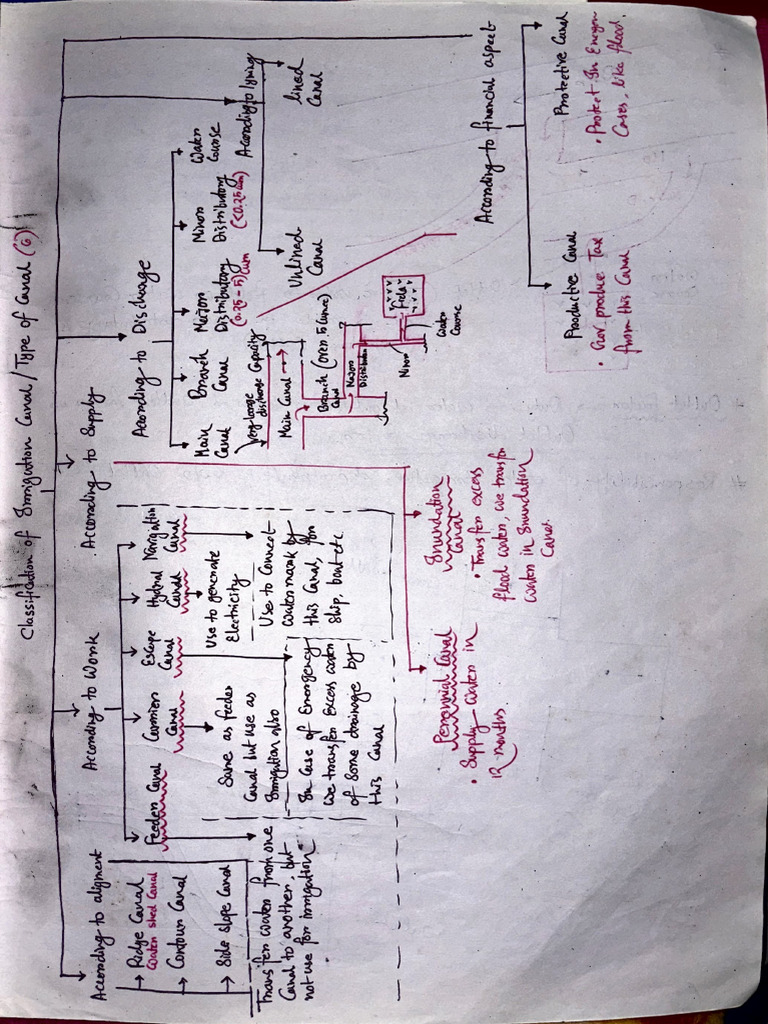 Classification of Irrigation Canal / Type of Canal (6)
According to aligment
→ Ridge Canal
Water shed Canal
→ Contour Canal
→ Side slope Canal
According to Work
Feeder Canal
Transfer water from one
Canal to another, but
not use for irrigation
Carrier
Canal
Same as feeder
Canal but use as
Irrigation also
Escape
Canal
In Case of Emergency
we transfer excess water
of some drainage by
this Canal
Hydral
Canal
Use to generate
Electricity
Navigation
Canal
Use to Connect
water mark by
this Canal, for
ship, boat etc.
According to Supply
Perennial Canal
• Supply water in
12 months.
Inundation
Canal
• Transfer excess
flood water, we transfer
water in Inundation
Canal
According to Discharge
Main
Canal
Very large
discharge Capacity
Branch
Canal
Major
Distributory
(0.25 - 5) Cum
Minor
Distributory
(<0.25 cum)
Water
Course
Main Canal →
Branch (over 5 Cumec)
Canal
Major
Distributor
Minor
Water
Course
Field
According to lyning
Unlined
Canal
lined
Canal
According to financial aspect
Productive Canal
• Gov produce Tax
from this Canal
Protective Canal
• Protect In Emergen
Cases, like flood.